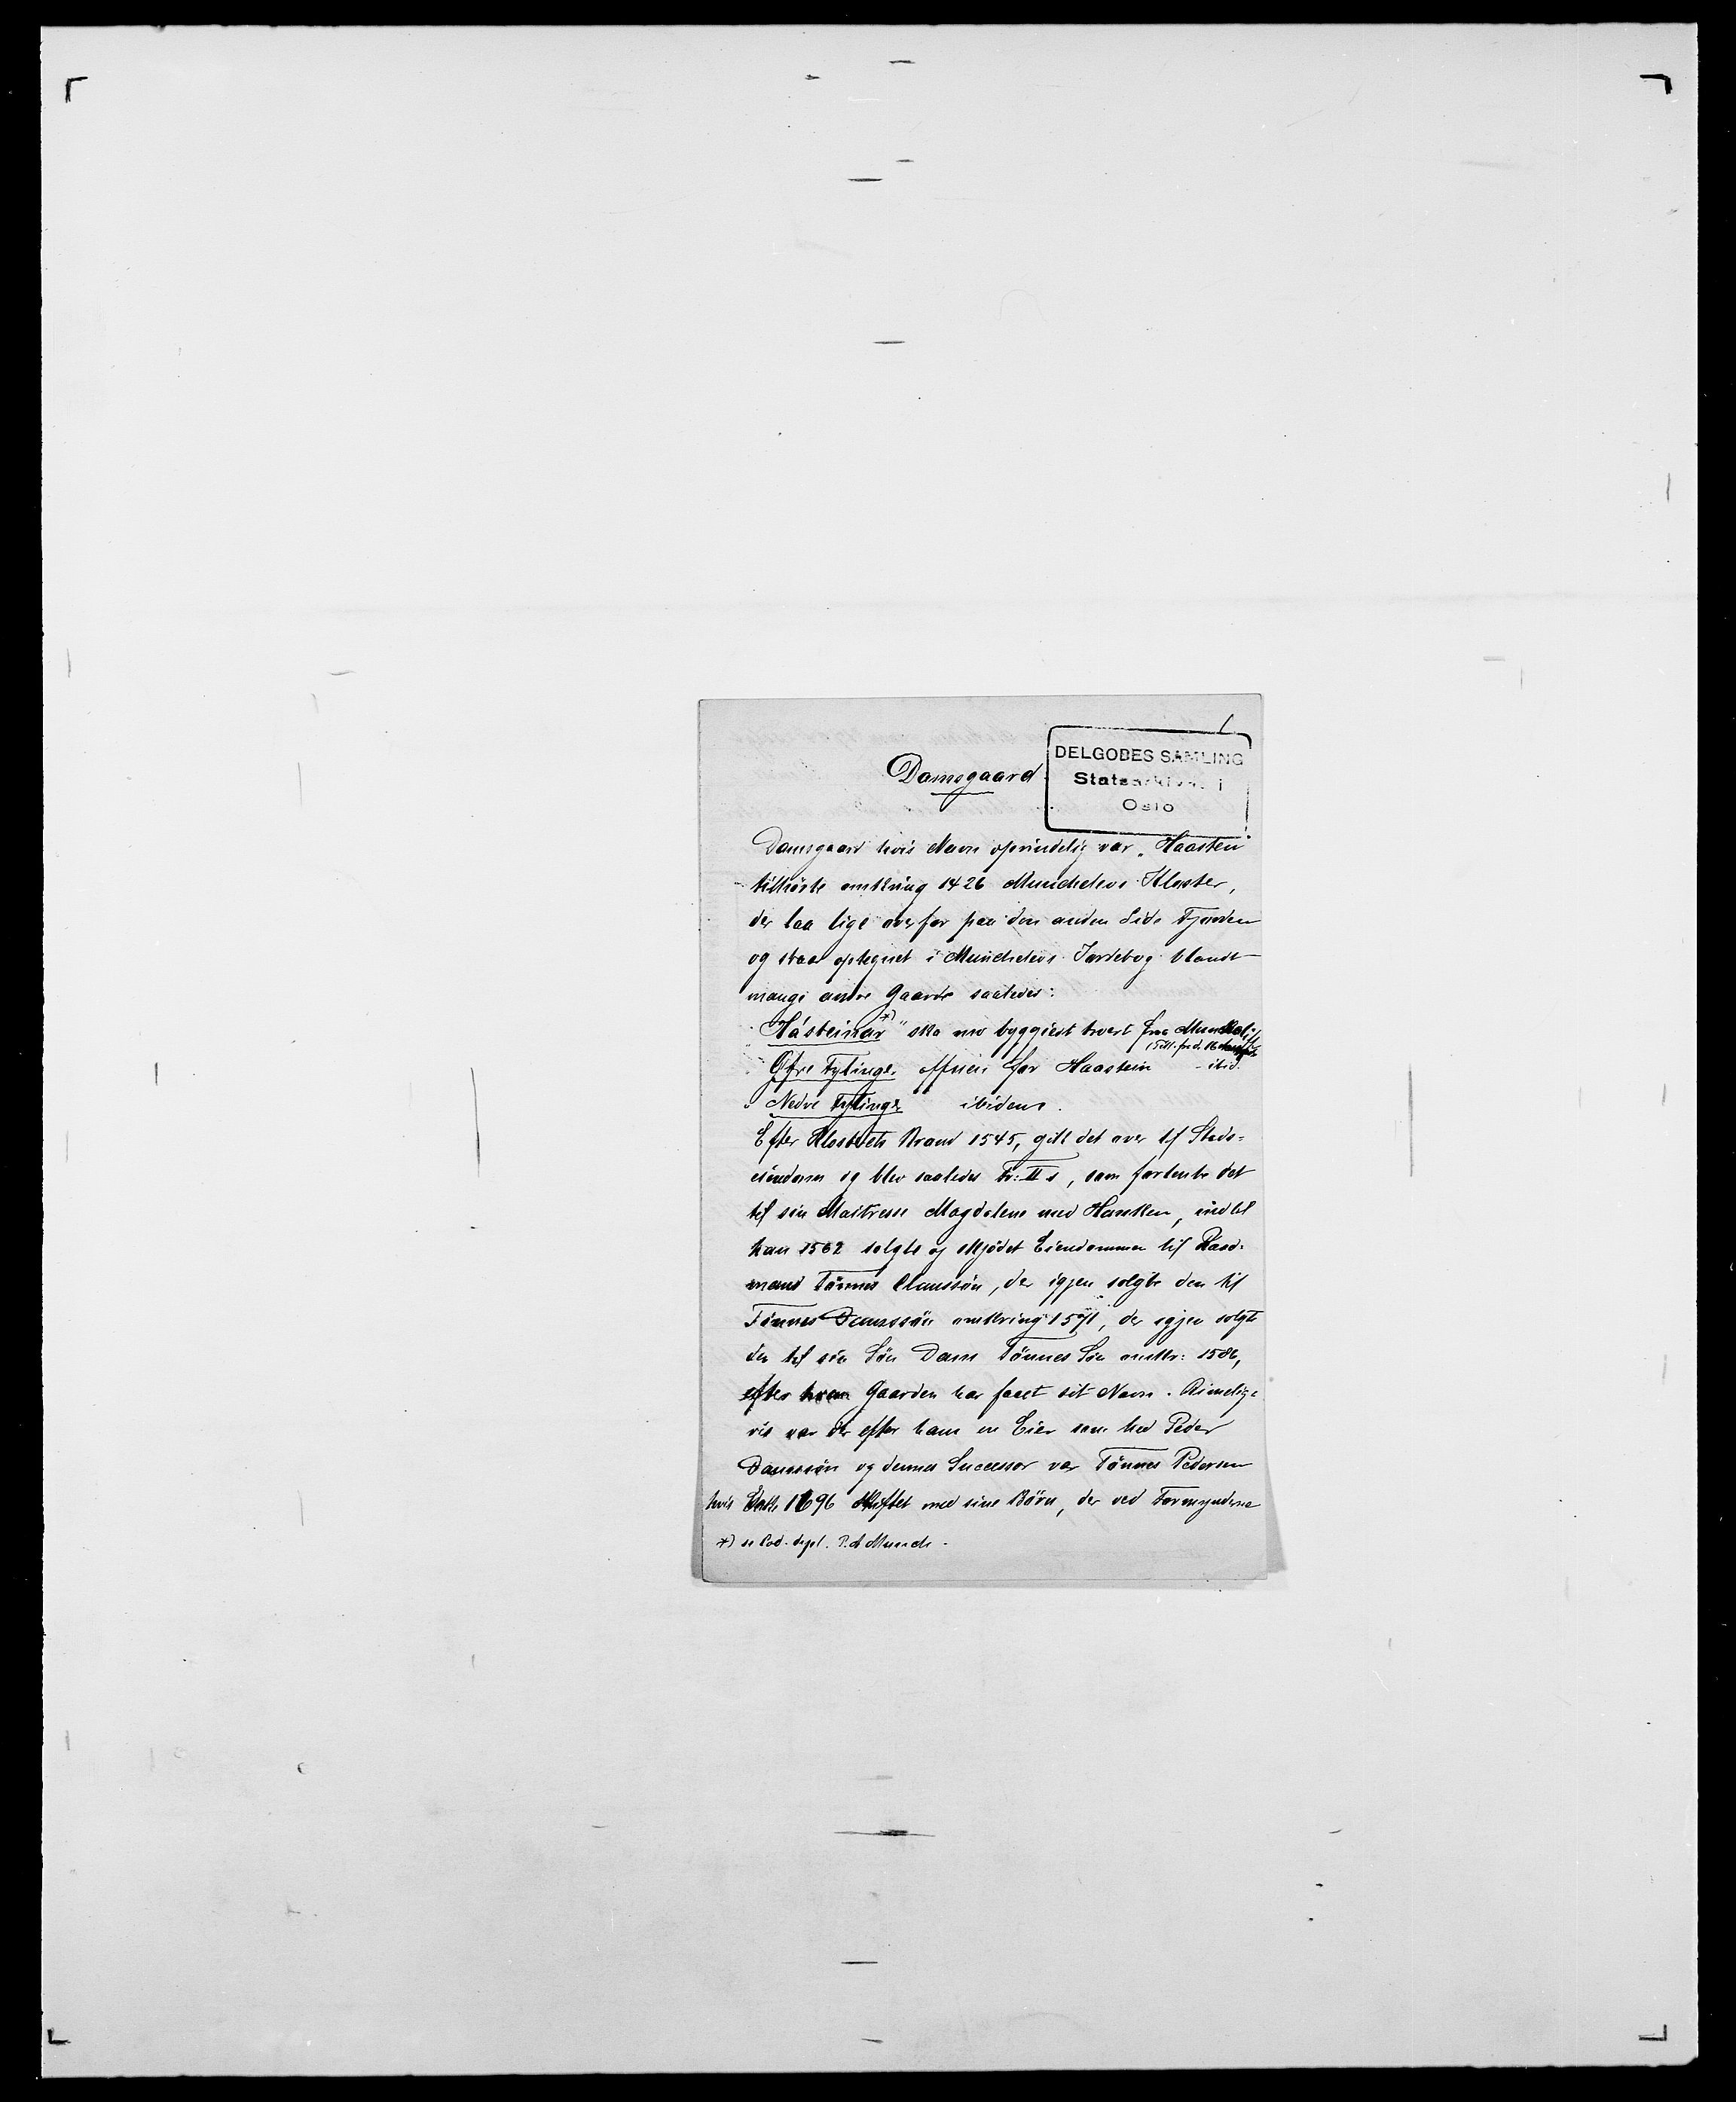 DELGOBES SAMLING
Statsarkivet i
Oslo
Damsgaard
Damsgaard hvis Navn oprindelig var „Haastein"
tilhörte omkring 1426 Munchelevs Kloster,
der laa lige overfor paa den anden Side Fjorden
og staar optegnet i Munchelevs Jordebog blandt
mange andre Gaarde saaledes:
"Hásteinar *)" ska nw byggiest twert fraa
Öfre Fyllinge offuen for Haastein - ibid.
" Nedre Fyllinge ibidem.
Efter Klosterets Brand 1545, gik det over til Stads-
eiendom og blev saaledes Fr: II s, som forlente det
til sin Maitresse Magdalene med Hansken, indtil
han 1562 solgte og skjödet Eiendommen til Raad-
mand Tönnes Claussön, der igjen solgte den til
Tönnes Damssön omkring 1571, der igjen solgte
den til sin Sön Dam Tönnes Sön omkr: 1586,
efter hvem Gaarden har faaet sit Navn. Rimelig-
vis var der efter ham en Eier som hed Peder
Damssön og dennes Successor var Tönnes Pedersen
hvis Enke 1696 skiftet med sine Börn, der ved Formynderne
*) se Cod. dipl. P. A Munch.